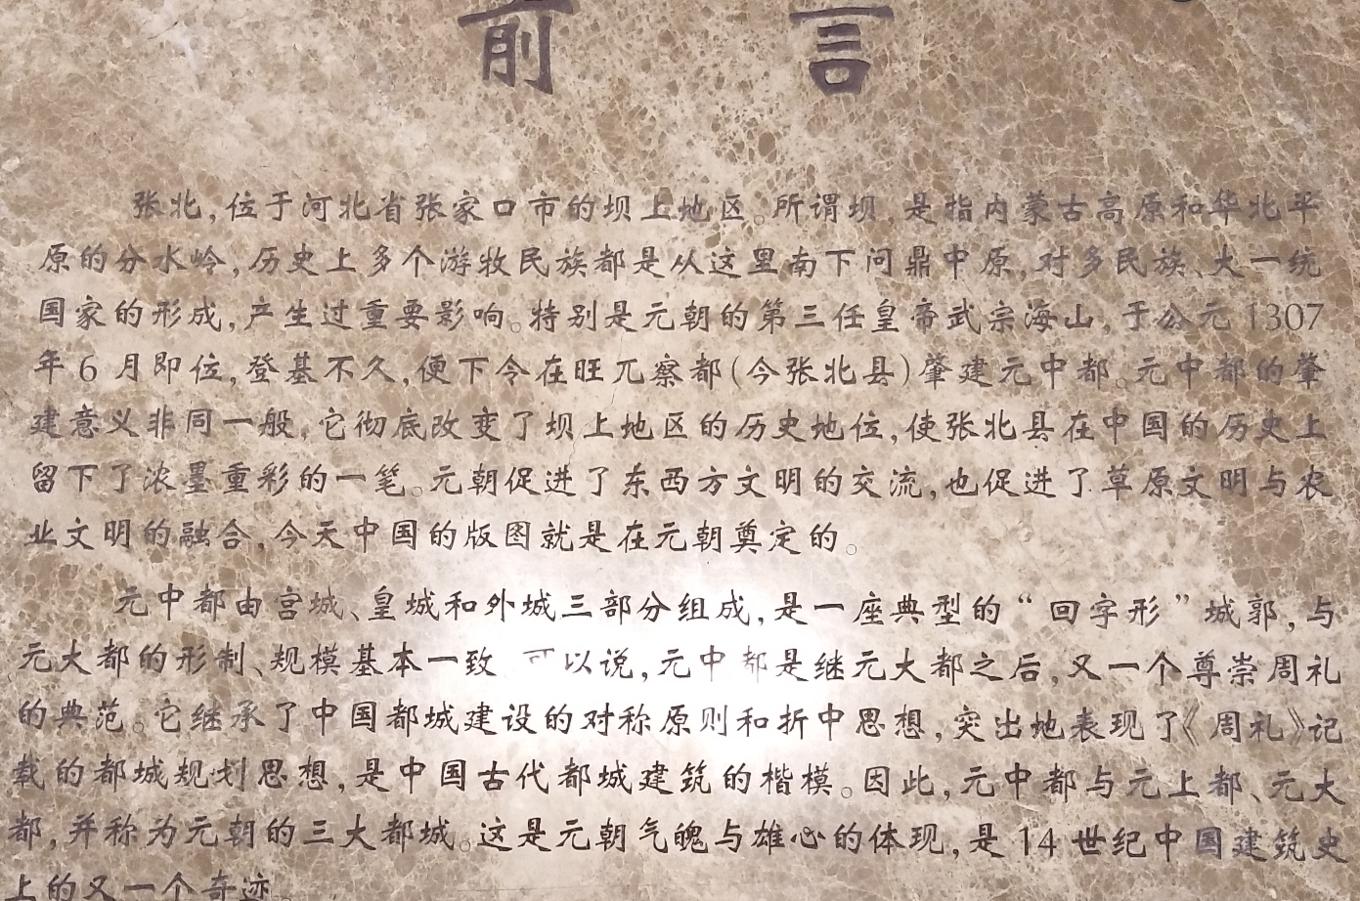 前言
张北,位于河北省张家口市的坝上地区。所谓坝,是指内蒙古高原和华北平
原的分水岭,历史上多个游牧民族都是从这里南下问鼎中原,对多民族、大一统
国家的形成,产生过重要影响。特别是元朝的第三任皇帝武宗海山,于公元1307
年6月即位,登基不久,便下令在旺兀察都(今张北县)肇建元中都。元中都的肇
建意义非同一般,它彻底改变了坝上地区的历史地位,使张北县在中国的历史上
留下了浓墨重彩的一笔。元朝促进了东西方文明的交流,也促进了草原文明与农
业文明的融合,今天中国的版图就是在元朝奠定的。
元中都由宫城、皇城和外城三部分组成,是一座典型的“回字形”城郭,与
元大都的形制、规模基本一致 可以说,元中都是继元大都之后,又一个尊崇周礼
的典范。它继承了中国都城建设的对称原则和折中思想,突出地表现了《周礼》记
载的都城规划思想,是中国古代都城建筑的楷模。因此,元中都与元上都、元大
都,并称为元朝的三大都城。这是元朝气魄与雄心的体现,是14世纪中国建筑史
上的又一个奇迹。